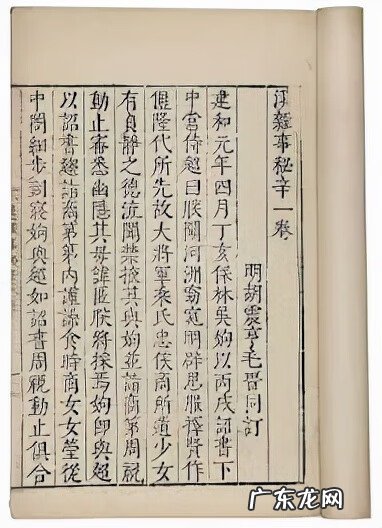 漢雜事秘辛一卷
明胡震亨毛晉同訂
建和元年四月丁亥保林吳姁以丙戌詔書下
中常侍超曰朕聞河洲窈窕明辟思服擇賢作
儷隆代所先故大將軍乘氏忠侯商所遺少女
有貞靜之德流聞禁掖其與姁並詣商第周視
動止審悉幽隱其毋諱匿朕將採焉姁即與超
以詔書趨詣商第第内讙譟食時商女女瑩從
中閤細步到寢姁與超如詔書周視動止俱合
广东龙网